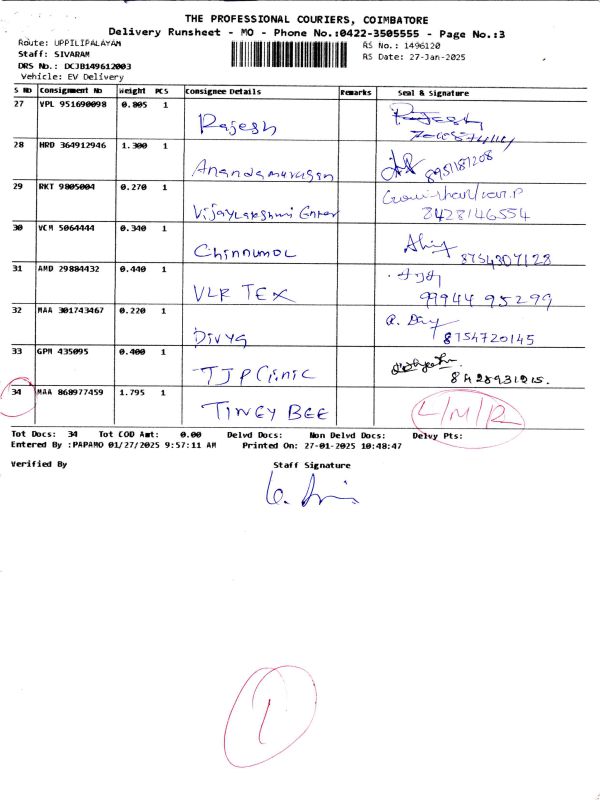 THE PROFESSIONAL COURIERS, COIMBATORE
Delivery Runsheet - MO - Phone No.:0422-3505555 - Page No.:3
Route: UPPILIPALAYAM
Staff: SIVARAM
DRS No.: DCJB149612003
Vehicle: EV Delivery
RS No.: 1496120
RS Date: 27-Jan-2025
S No Consignment No Weight PCS Consignee Details Remarks Seal & Signature
27 VPL 951690098 0.805 1 Rajesh Rajesh
28 HRD 364912946 1.300 1 Anandamurugan 8951187208
29 RKT 9805004 0.270 1 Vijaylakshmi Enter
8428146554
30 VCM 5064444 0.340 1 Chinnumol 8754307128
31 AMD 29884432 0.440 1 VLR TEX
99944 95299
32 MAA 301743467 0.220 1 Divya
8754720145
33 GPM 435095 0.400 1 TJP Clinic
8428931215.
34 MAA 868977459 1.795 1 TINGY BEE L/M/R
Tot Docs: 34 Tot COD Amt: 0.00 Delvd Docs: Non Delvd Docs: Delvy Pts:
Entered By :PAPAMO 01/27/2025 9:57:11 AM Printed On: 27-01-2025 10:48:47
Verified By Staff Signature
1